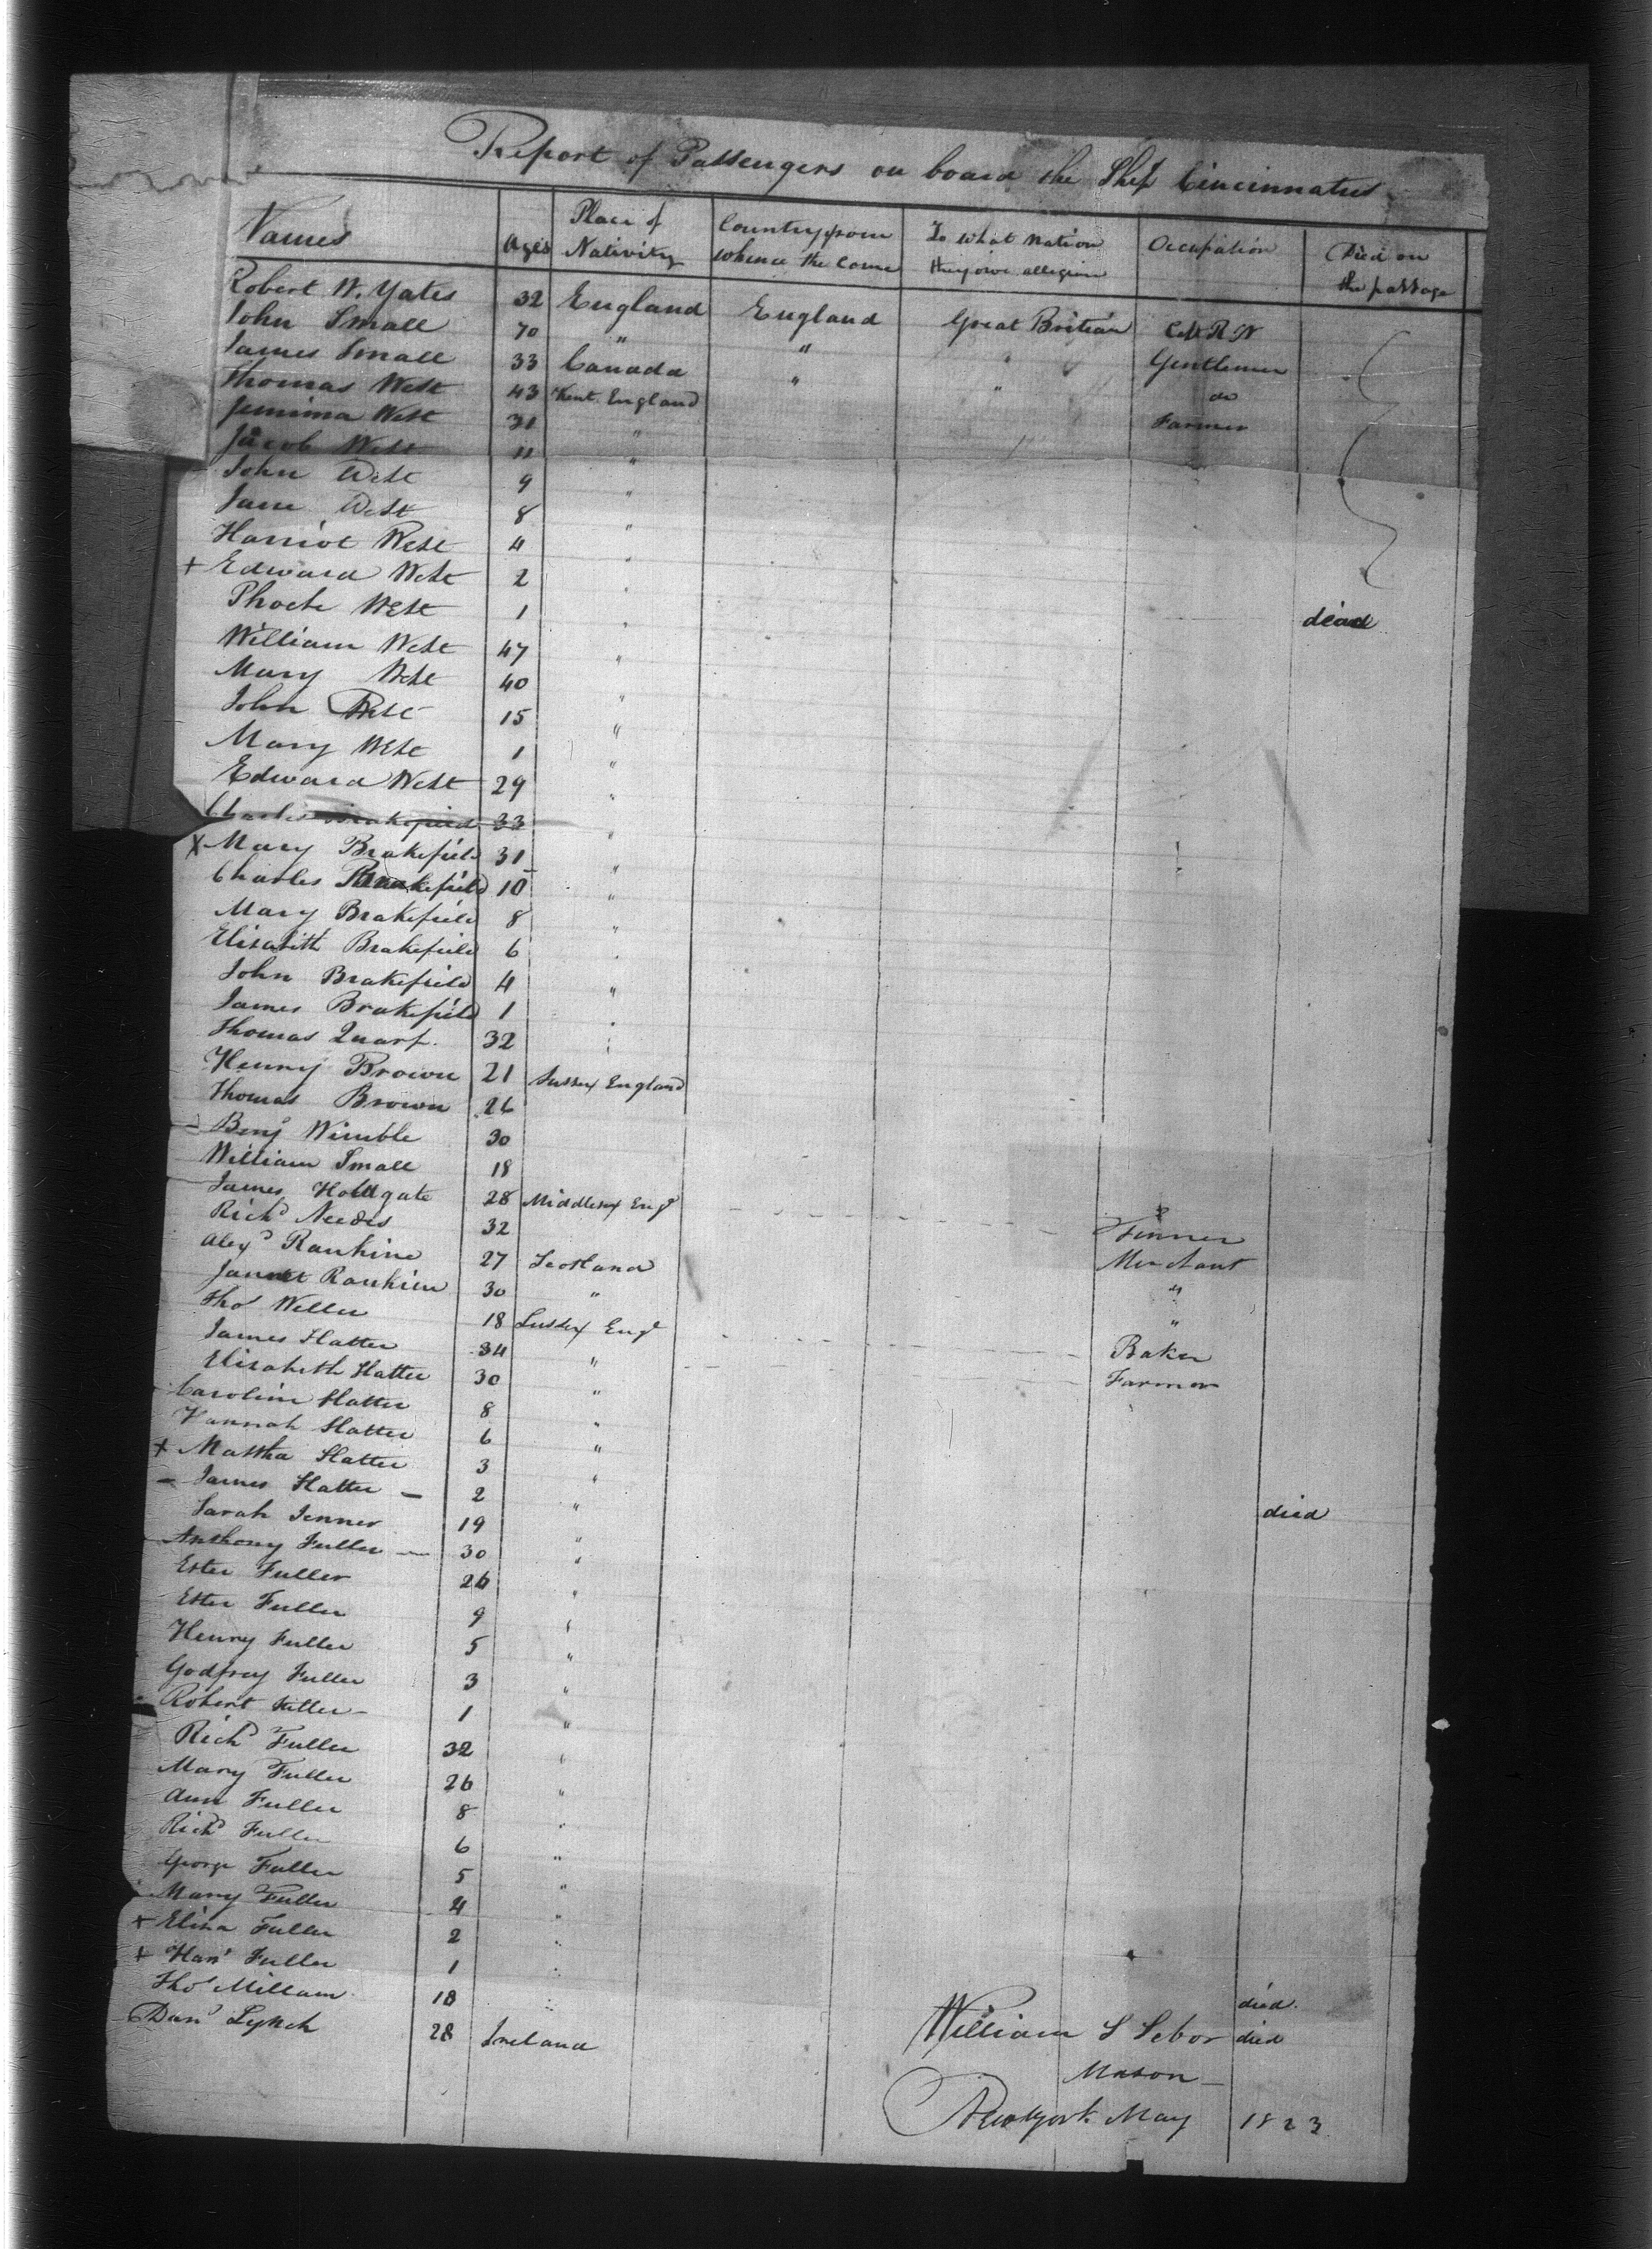 Report of Passengers on board the Ship Cincinnatus
Names Ages Place of Nativity Country from whence the Came To what Nation they owe allegian Occupation Died on the passage
Robert W. Yates 32 England England Great Britian R N
John Small 70 " " Gentlemen
James Small 33 Canada " do
Thomas West 43 Kent England " Farmer
Jemima West 31 "
Jacob West 11 "
John West 9 "
Jane West 8 "
Harriot West 4 "
+ Edward West 2 " dead
Phoebe West 1 "
William West 47 "
Mary West 40 "
John West 15 "
Mary West 1 "
Edward West 29 "
Charles Brakefield 33 "
X Mary Brakefield 31 "
Charles Brakefield 10 "
Mary Brakefield 8 "
Elisabith Brakefield 6 "
John Brakefield 4 "
James Brakefield 1 "
Thomas Quarf. 32 "
Henry Brown 21 Sussex England
Thomas Brown 26
Benj Wimble 30
William Small 18
James Holdgate 28 Middlesex Engd
Richd Needes 32 Merchant
Alexd Rankine 27 Scotland "
Jannet Rankien 30 " "
Thos Weller 18 Sussex Engd Baker
James Hatter 34 " Farmer
Elizabeth Hatter 30 "
Caroline Hatter 8 "
Hannah Hatter 6 "
+ Martha Hatter 3 " died
- James Hatter - 2 "
Sarah Jenner 19 "
Anthony Fuller - 30 "
Ester Fuller 26 "
Ester Fuller 9 "
Henry Fuller 5 "
Godfrey Fuller 3 "
Robert Fuller - 1 "
Richd Fuller 32 "
Mary Fuller 26 "
Ann Fuller 8 "
Richd Fuller 6 "
George Fuller 5 "
Mary Fuller 4 "
+ Eliza Fuller 2 " died
+ Hanh Fuller 1 " died
Thos Millam 18 "
Danl Lynch 28 Ireland
William S Sebor
Mason
Newyork May 1823